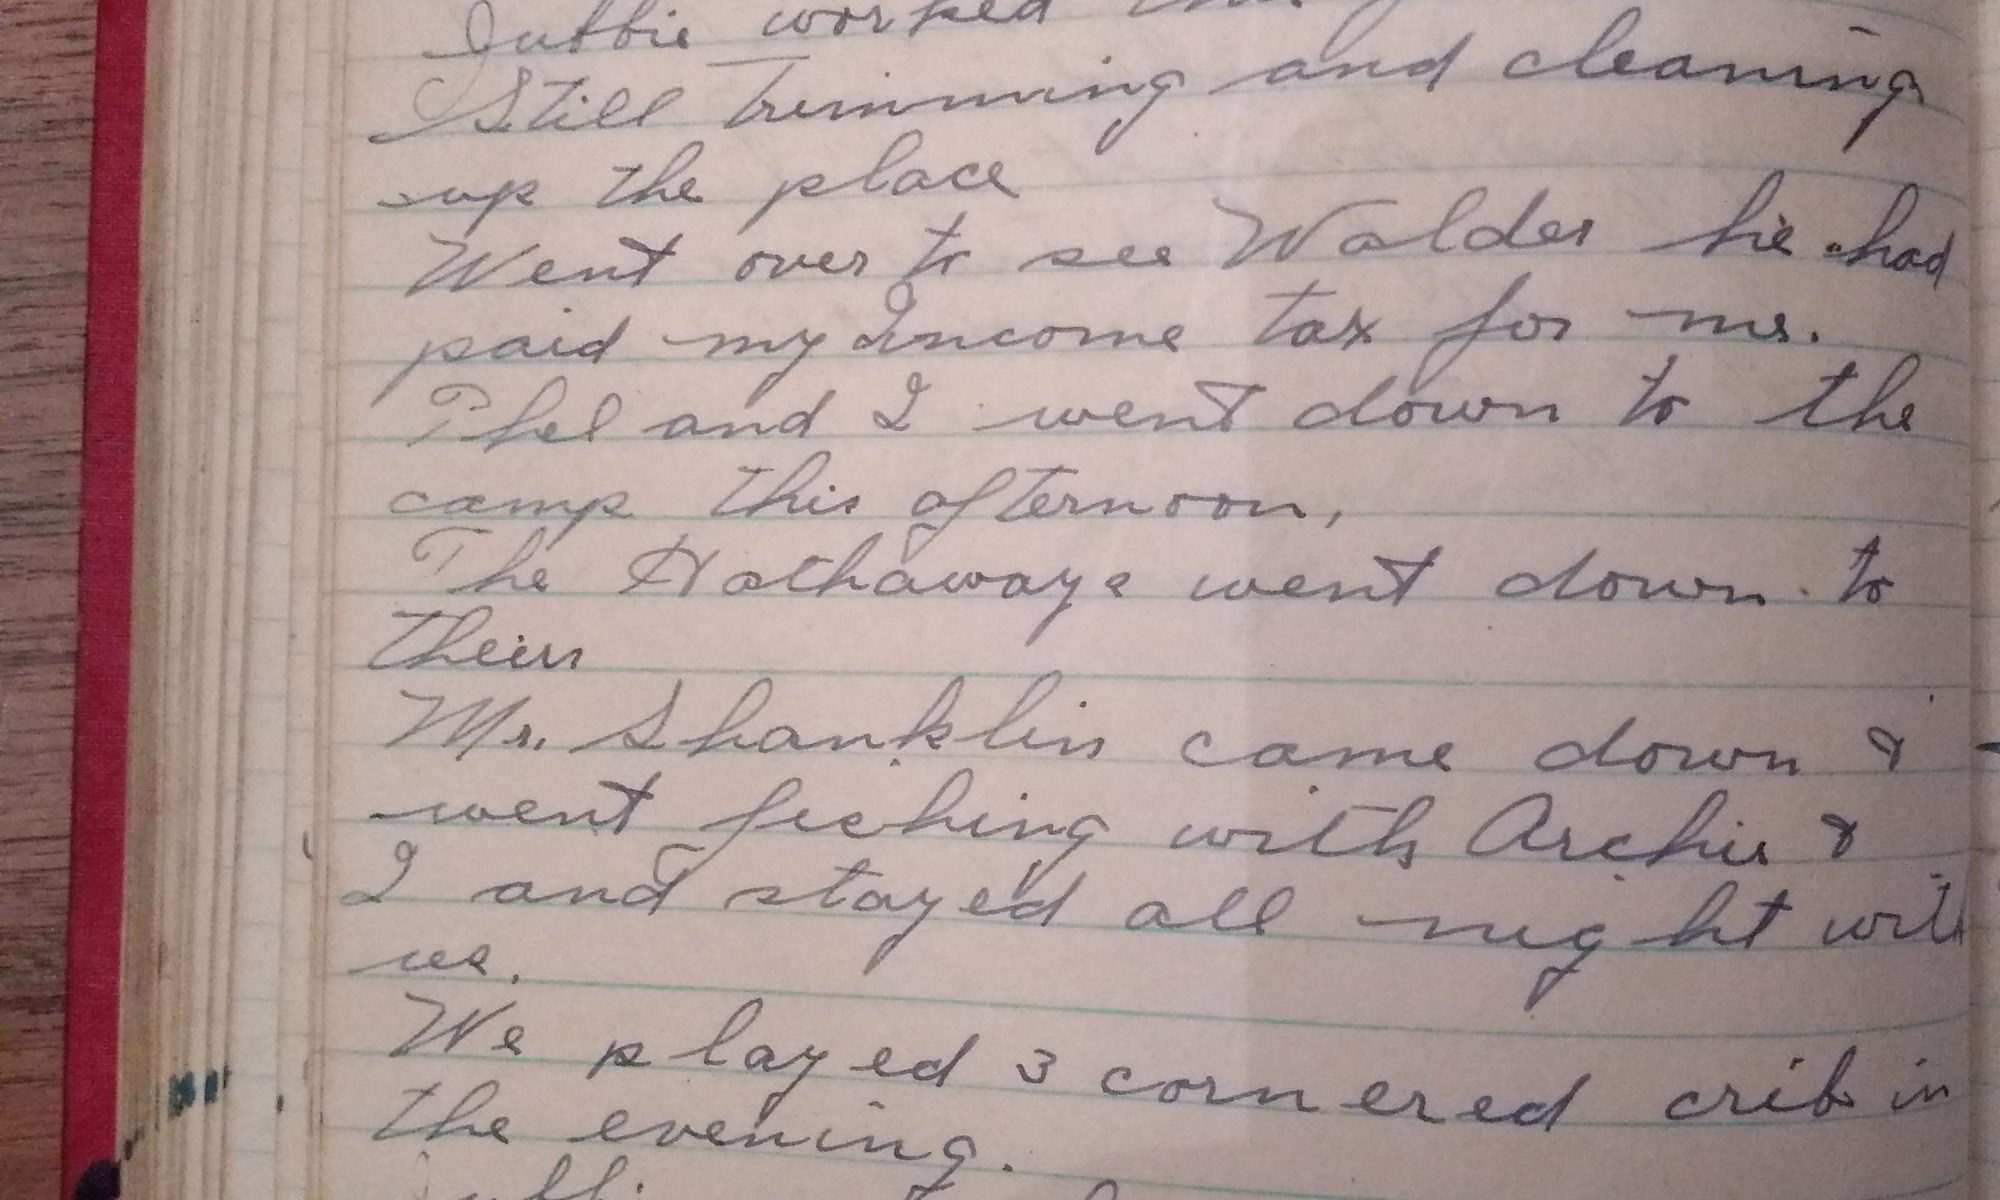 worked
Still Trimming and cleaning
up the place
Went over to see Walder he had
paid my Income tax for me.
Phel and I went down to the
camp this afternoon,
The Hathaways went down to
theirs
Mr. Shanklin came down &
went fishing with Archie &
I and stayed all night with
us.
We played 3 cornered crib in
the evening.